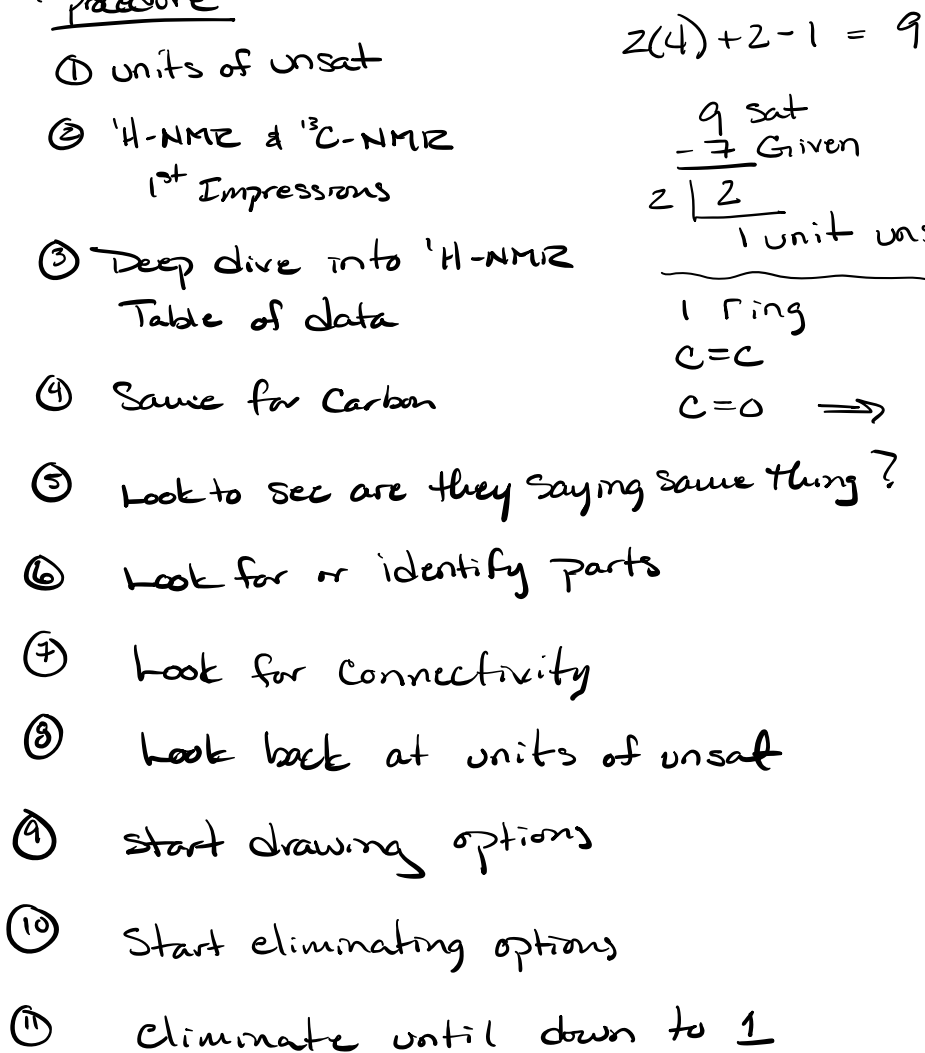 procedure
① units of unsat
② ¹H-NMR & ¹³C-NMR
1st Impressions
③ Deep dive into ¹H-NMR
Table of data
④ Same for Carbon
⑤ Look to see are they saying same thing?
⑥ Look for or identify parts
⑦ Look for connectivity
⑧ Look back at units of unsat
⑨ start drawing options
⑩ Start eliminating options
⑪ eliminate until down to 1
2(4)+2-1 = 9
9 sat
- 7 Given
2 | 2
1 unit uns
1 ring
C=C
C=O ⟹